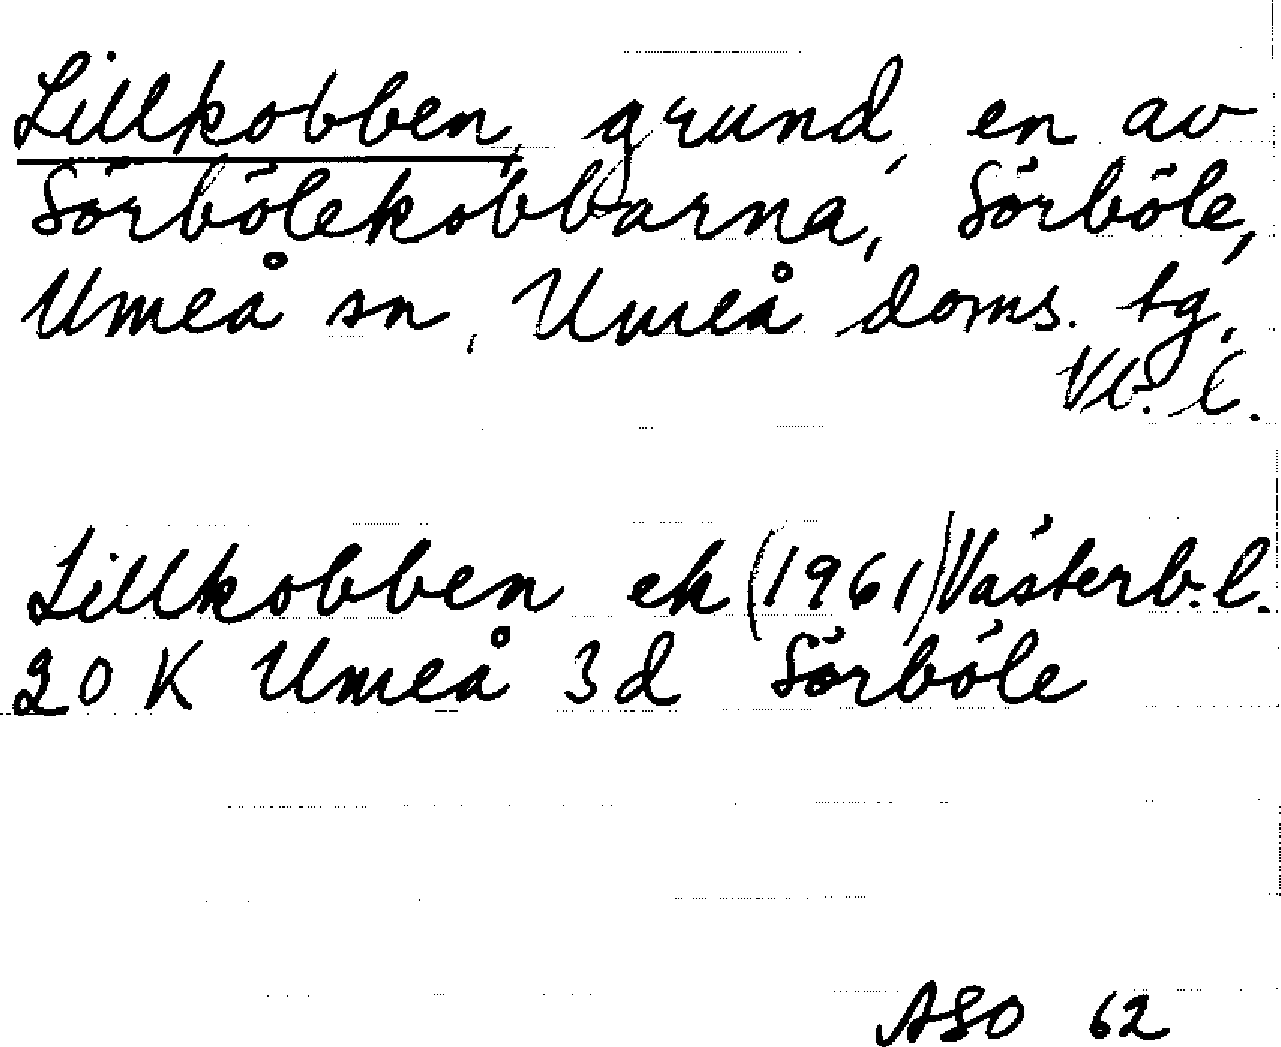 Lillkobben, grund, en av
Sörbölekobbarna, Sörböle,
Umeå sn, Umeå doms. tg,
Vb. l.
Lillkobben ek (1961) Västerb. l.
20 K Umeå 3d Sörböle
ASO 62